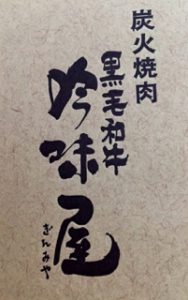 炭火焼肉
黒毛和牛
吟味屋
ぎんみや